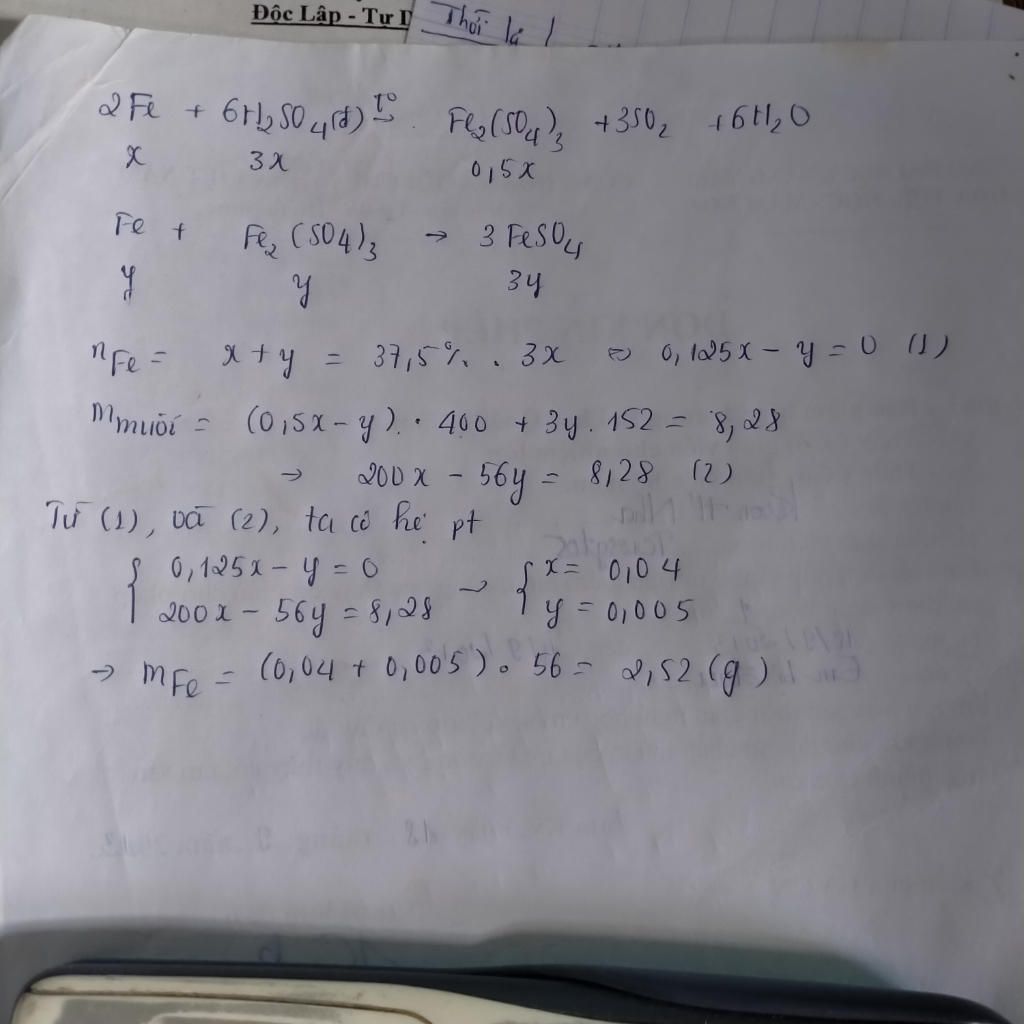 Độc Lập - Tự D
Thời
2Fe + 6H₂SO₄(đ) t° → Fe₂(SO₄)₃ + 3SO₂ + 6H₂O
x 3x 0,5x
Fe + Fe₂(SO4)₃ → 3FeSO₄
y y 3y
nFe = x + y = 37,5% . 3x ⇔ 0,125x - y = 0 (1)
mmuối = (0,5x - y) . 400 + 3y . 152 = 8,28
→ 200x - 56y = 8,28 (2)
Từ (1), và (2), ta có hệ pt
{ 0,125x - y = 0 → { x = 0,04
200x - 56y = 8,28 y = 0,005
→ mFe = (0,04 + 0,005) . 56 = 2,52 (g)